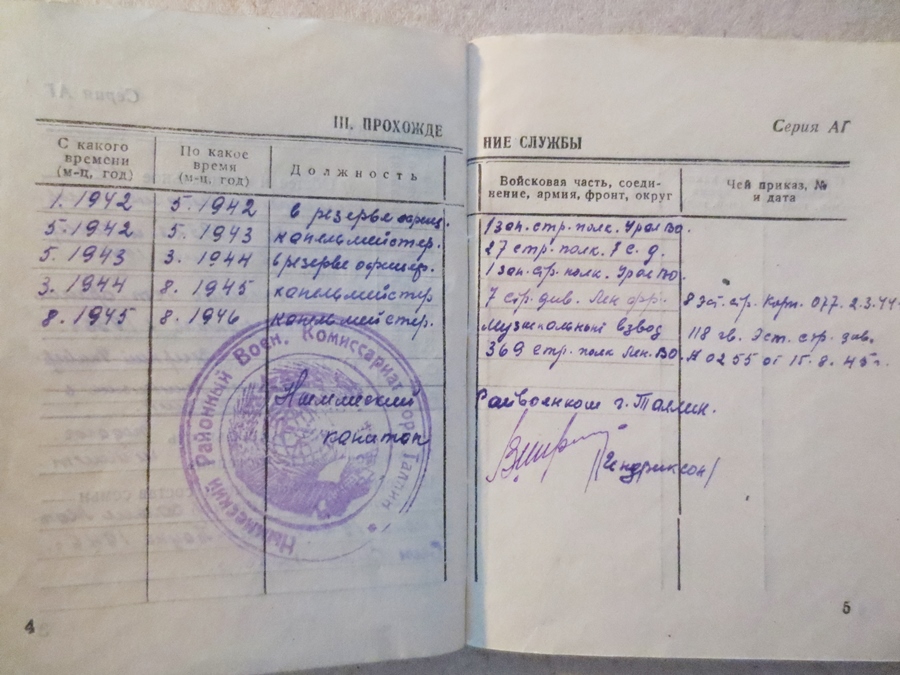 III. ПРОХОЖДЕ
С какого времени (м-ц, год)
По какое время (м-ц, год)
Должность
1. 1942 5. 1942 в резерве офиц.
5. 1942 5. 1943 капельмейстер.
5. 1943 3. 1944 в резерве офицер.
3. 1944 8. 1945 капельмейстер
8. 1945 8. 1946 капельмейстер.
Нымменский
капитан
Нымнеский Районный Воен. Комиссариат гор. Таллин
4
Серия АГ
НИЕ СЛУЖБЫ
Войсковая часть, соеди-
нение, армия, фронт, округ
Чей приказ, №
и дата
1 зап. стр. полк. УралВо.
27 стр. полк. 7 с. д.
1 зап. стр. полк. УралВо.
7 стр. див. Лен фр. 8 Эст. стр. Корп. 077. 2.3.44
Музыкальный взвод 118 гв. Эст. стр. див.
369 стр. полк Лен. ВО. №0255 от 15.8.45г.
Райвоенком г. Таллин.
/Гендриксон/
5